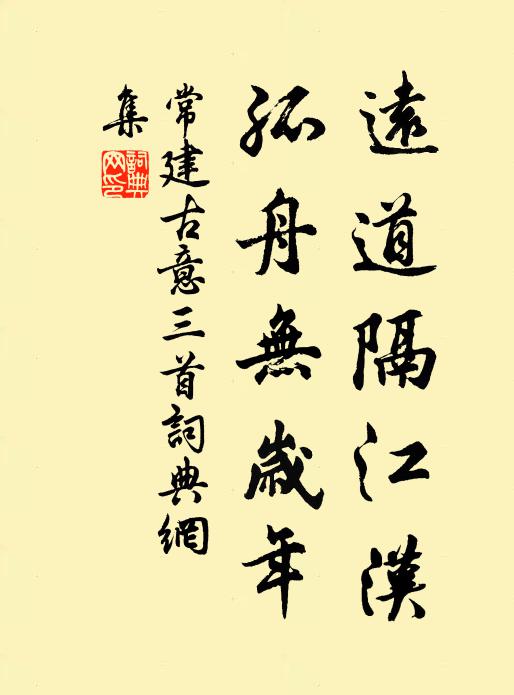 遠道隔江漢
孤舟無歲年
常建古意三首詞典網
集
詞典
网印